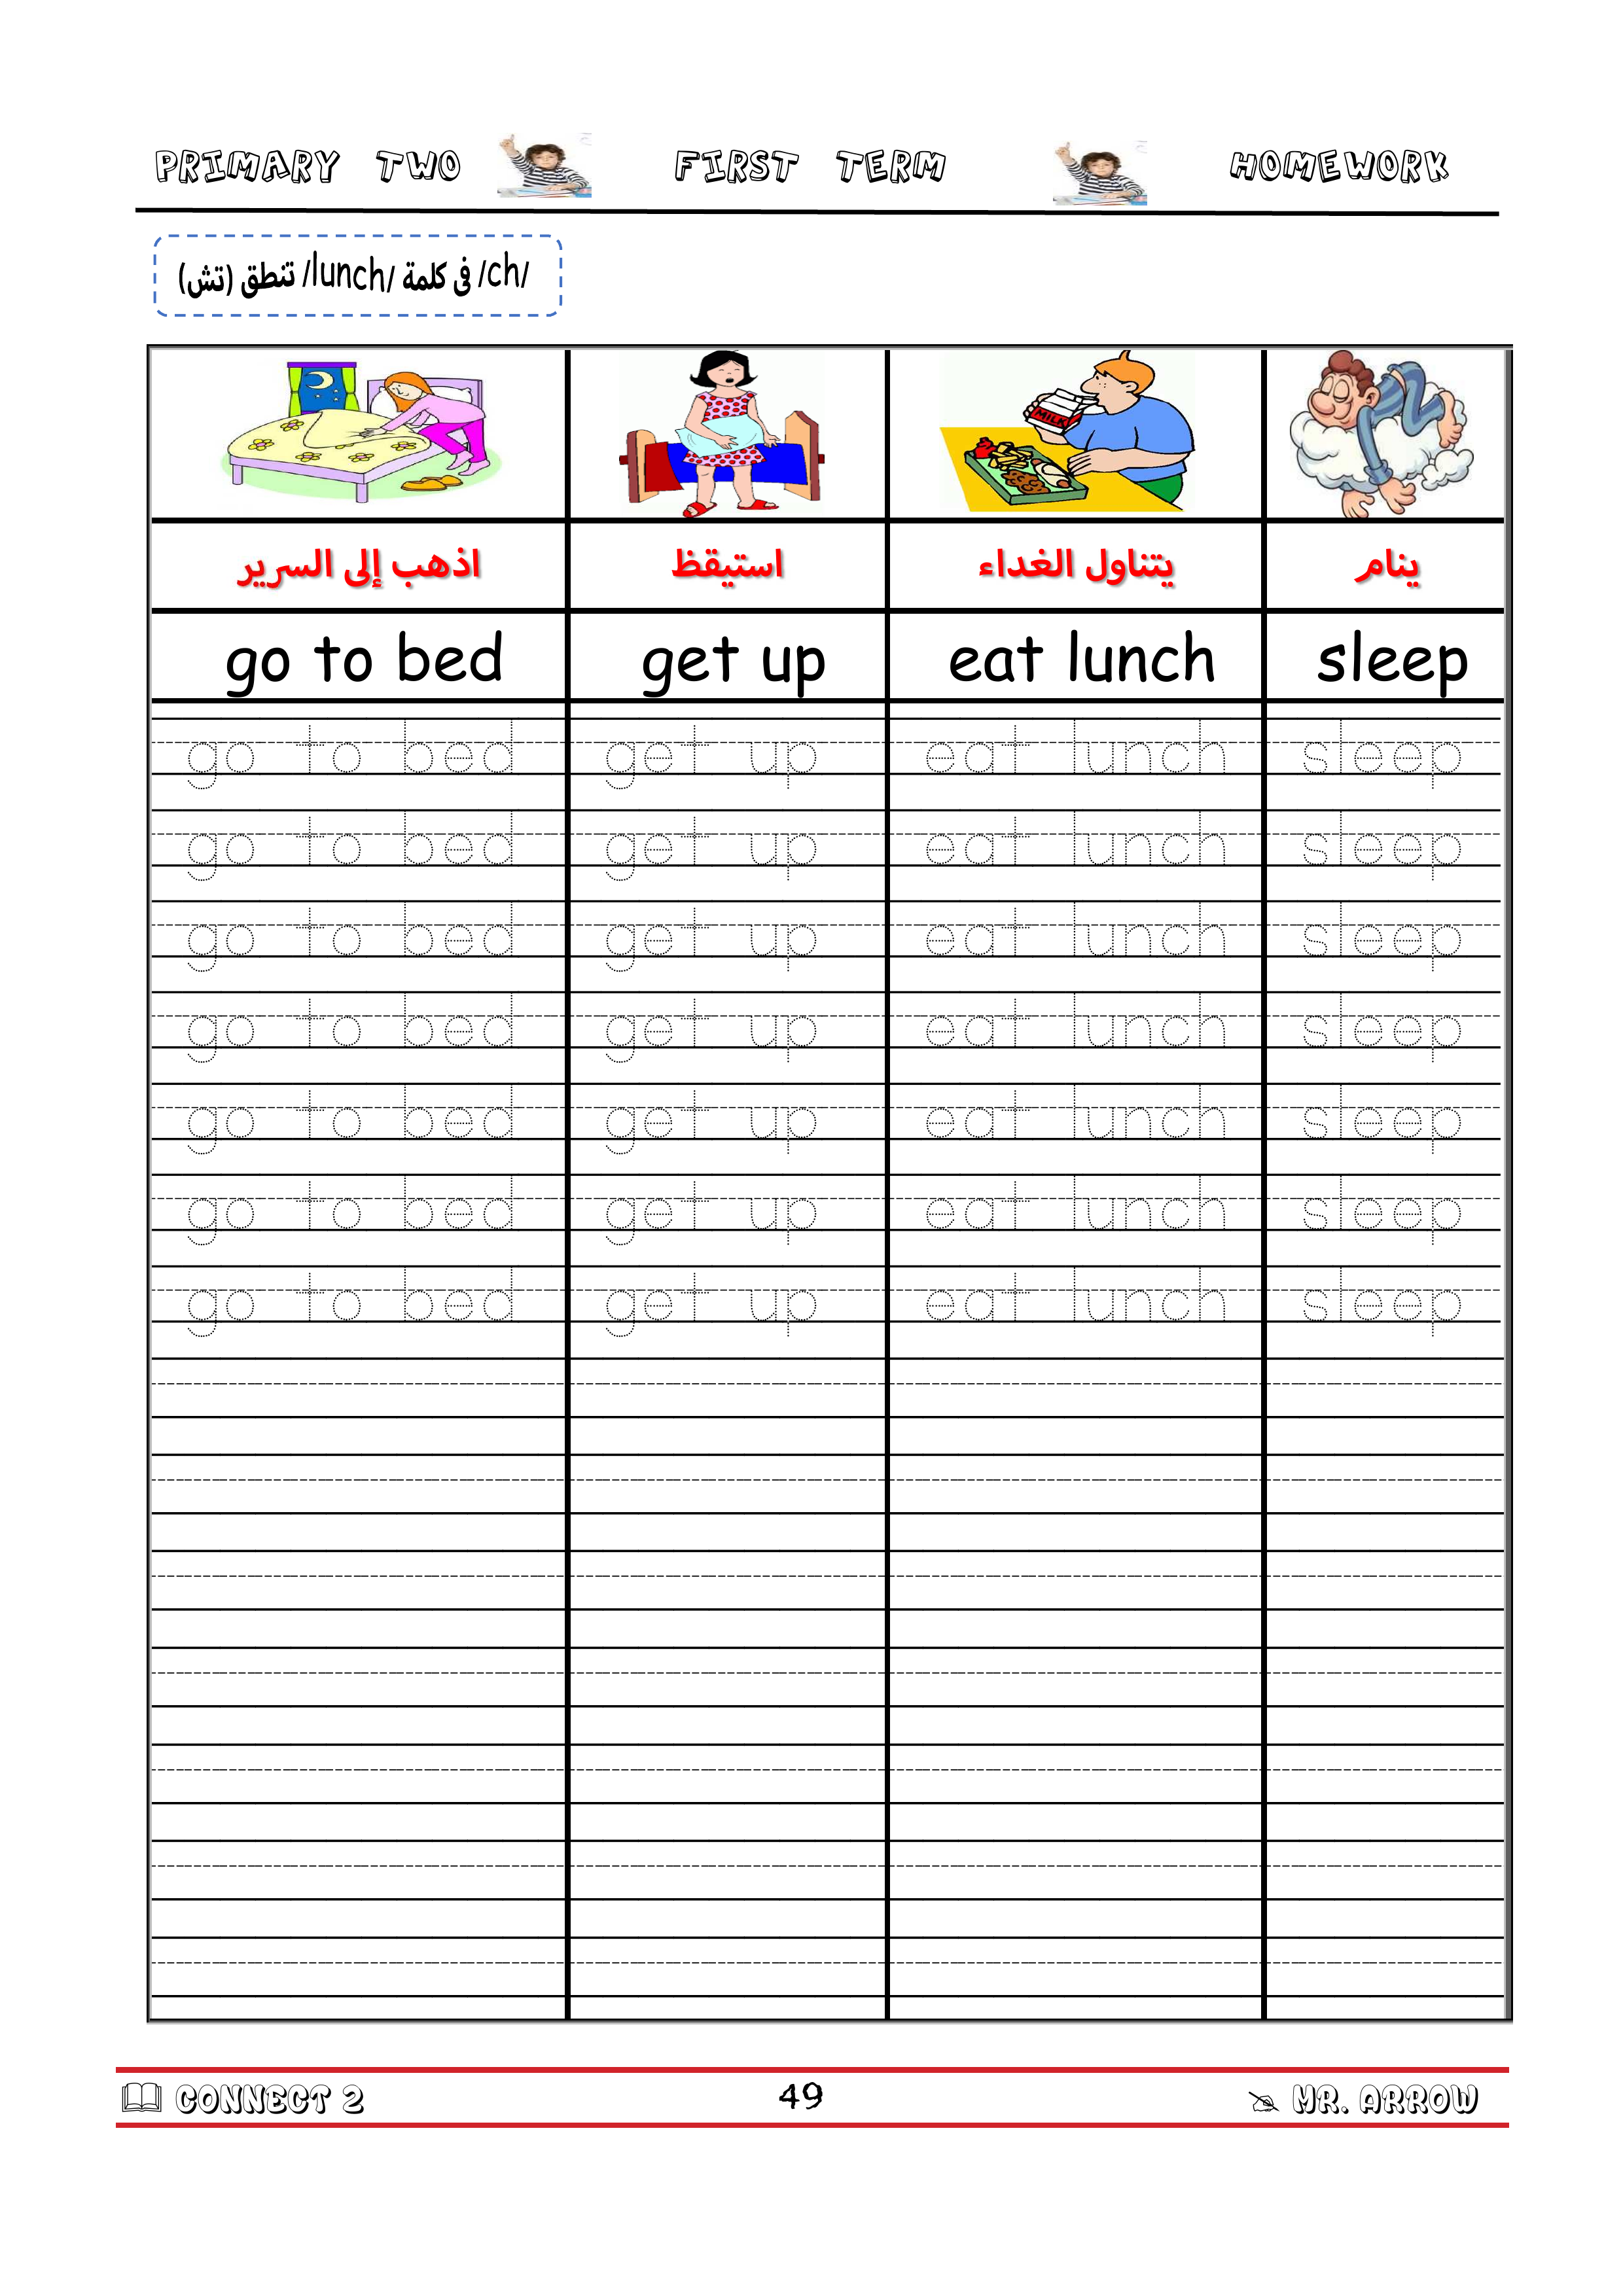 PRIMARY TWO FIRST TERM HOMEWORK
/ch/ فى كلمة /lunch/ تنطق (تش)
MILK
اذهب إلى السرير استيقظ يتناول الغداء ينام
go to bed get up eat lunch sleep
go to bed get up eat lunch sleep
go to bed get up eat lunch sleep
go to bed get up eat lunch sleep
go to bed get up eat lunch sleep
go to bed get up eat lunch sleep
go to bed get up eat lunch sleep
go to bed get up eat lunch sleep
CONNECT 2 49 MR. ARROW